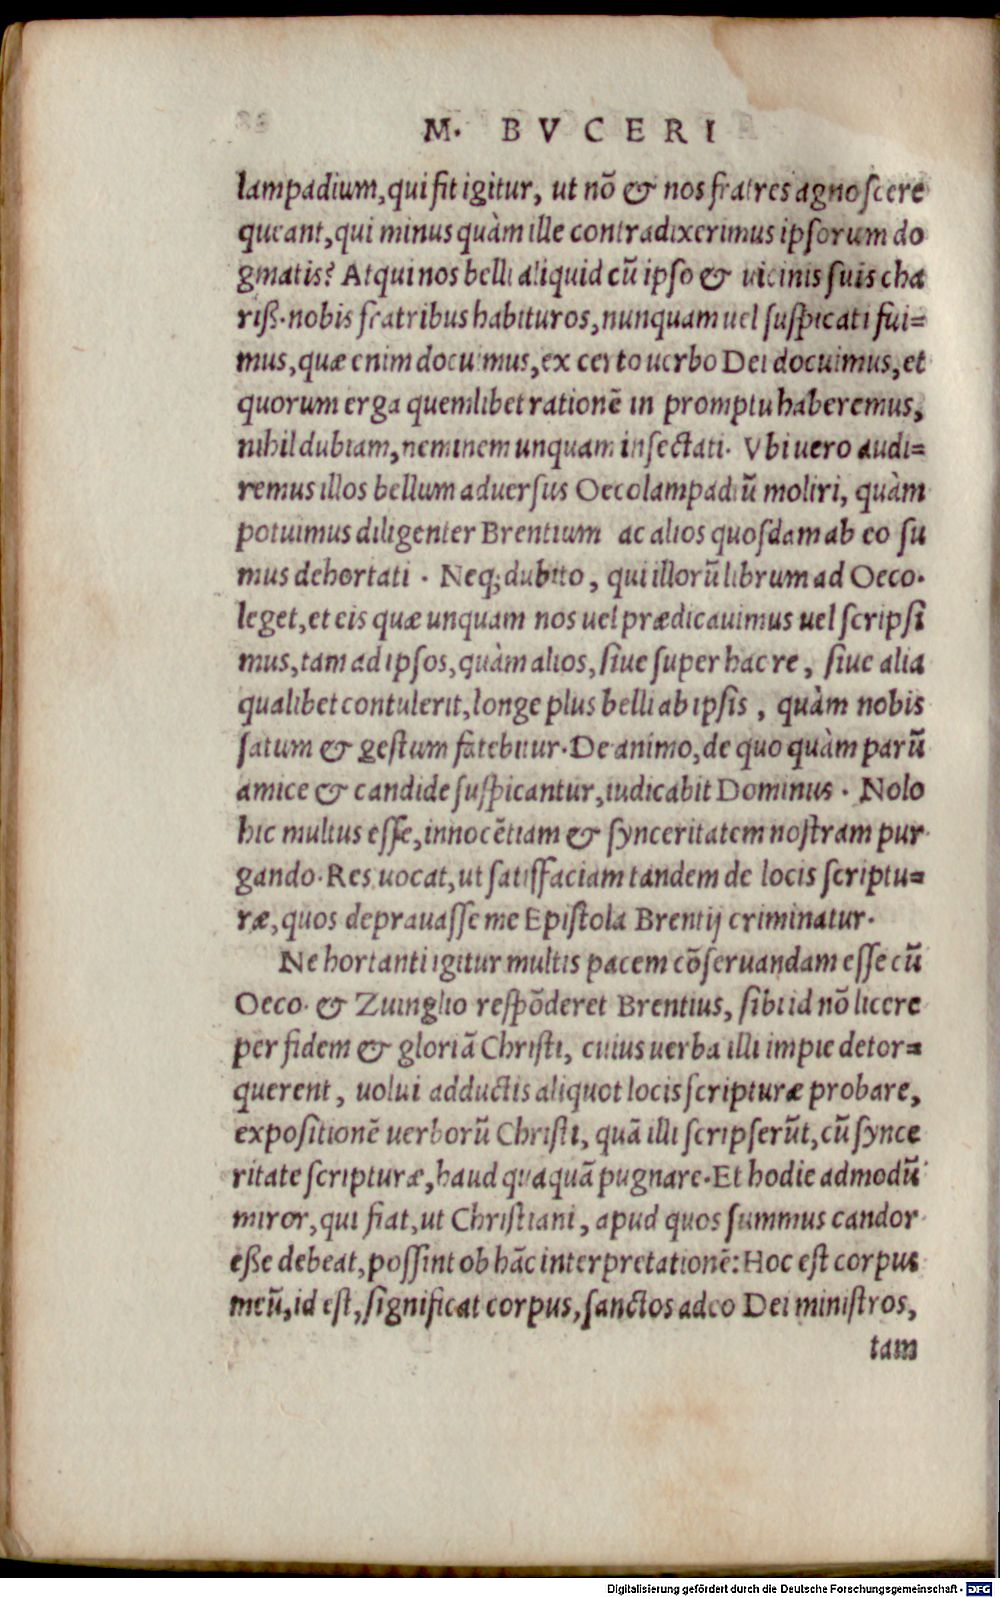 M. BVCERI
lampadium, qui fit igitur, ut nõ & nos fratres agnoscere
queant, qui minus quàm ille contradixerimus ipsorum do
gmatis? Atqui nos belli aliquid cũ ipso & uicinis suis cha
riß. nobis fratribus habituros, nunquam uel suspicati fui=
mus, quæ enim docuimus, ex certo uerbo Dei docuimus, et
quorum erga quemlibet rationẽ in promptu haberemus,
nihil dubiam, neminem unquam insectati. Vbi uero audi=
remus illos bellum aduersus Oecolampadiũ moliri, quàm
potuimus diligenter Brentium ac alios quosdam ab eo su
mus dehortati. Neq; dubito, qui illorũ librum ad Oeco.
leget, et eis quæ unquam nos uel prædicauimus uel scripsi
mus, tam ad ipsos, quàm alios, siue super hac re, siue alia
qualibet contulerit, longe plus belli ab ipsis, quàm nobis
satum & gestum fatebitur. De animo, de quo quàm parũ
amice & candide suspicantur, iudicabit Dominus. Nolo
hic multus esse, innocẽtiam & synceritatem nostram pur
gando. Res uocat, ut satisfaciam tandem de locis scriptu=
ræ, quos deprauasse me Epistola Brentij criminatur.
Ne hortanti igitur multis pacem cõseruandam esse cũ
Oeco. & Zuinglio respõderet Brentius, sibi id nõ licere
per fidem & gloriã Christi, cuius uerba illi impie detor=
querent, uolui adductis aliquot locis scripturæ probare,
expositionẽ uerborũ Christi, quã illi scripserũt, cũ synce
ritate scripturæ, haud quaquã pugnare. Et hodie admodũ
miror, qui fiat, ut Christiani, apud quos summus candor
eße debeat, possint ob hãc interpretationẽ: Hoc est corpus
meũ, id est, significat corpus, sanctos adeo Dei ministros,
tam
Digitalisierung gefördert durch die Deutsche Forschungsgemeinschaft - DFG